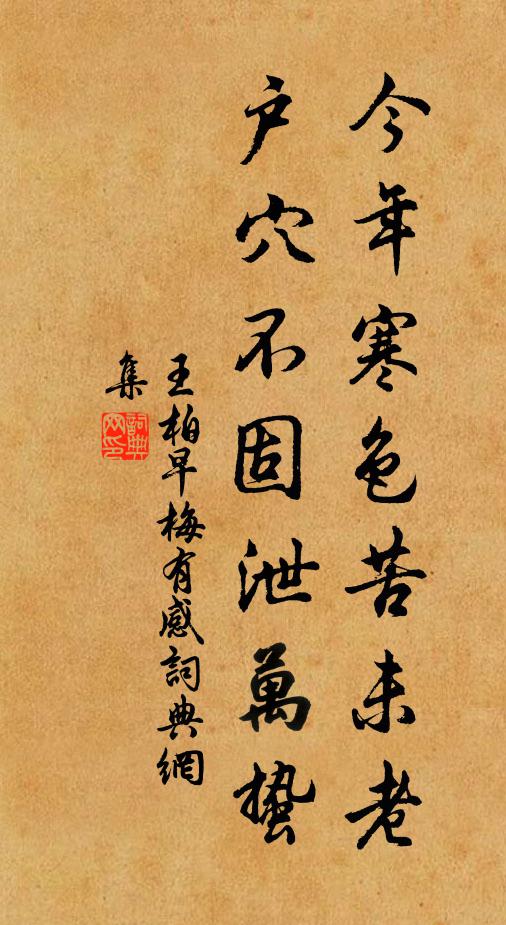 今年寒色苦未老
户穴不固泄萬蟄
王柏早梅有感詞典網
集
詞典
网印